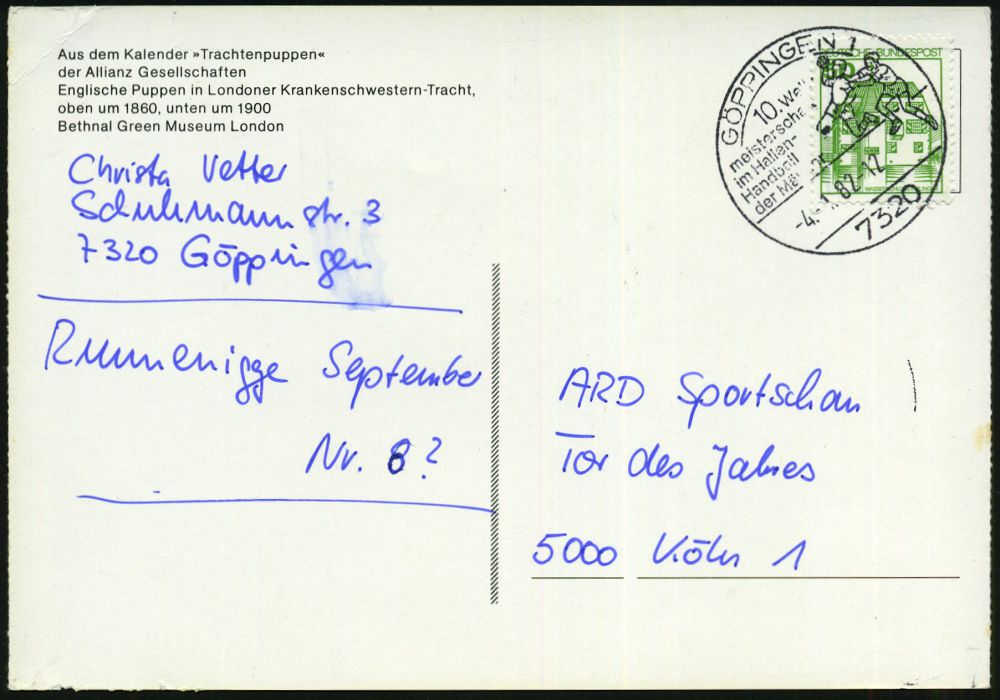 Aus dem Kalender »Trachtenpuppen«
der Allianz Gesellschaften
Englische Puppen in Londoner Krankenschwestern-Tracht,
oben um 1860, unten um 1900
Bethnal Green Museum London
Christa Vetter
Schuhmannstr. 3
7320 Göppingen
Rummenigge September
Nr. 8?
GÖPPINGEN 1
10. Welt
meisterscha
im Hallen-
Handball
der Mä
82-12
7320
DEUTSCHE BUNDESPOST
50
ARD Sportschau
Tor des Jahres
5000 Köln 1